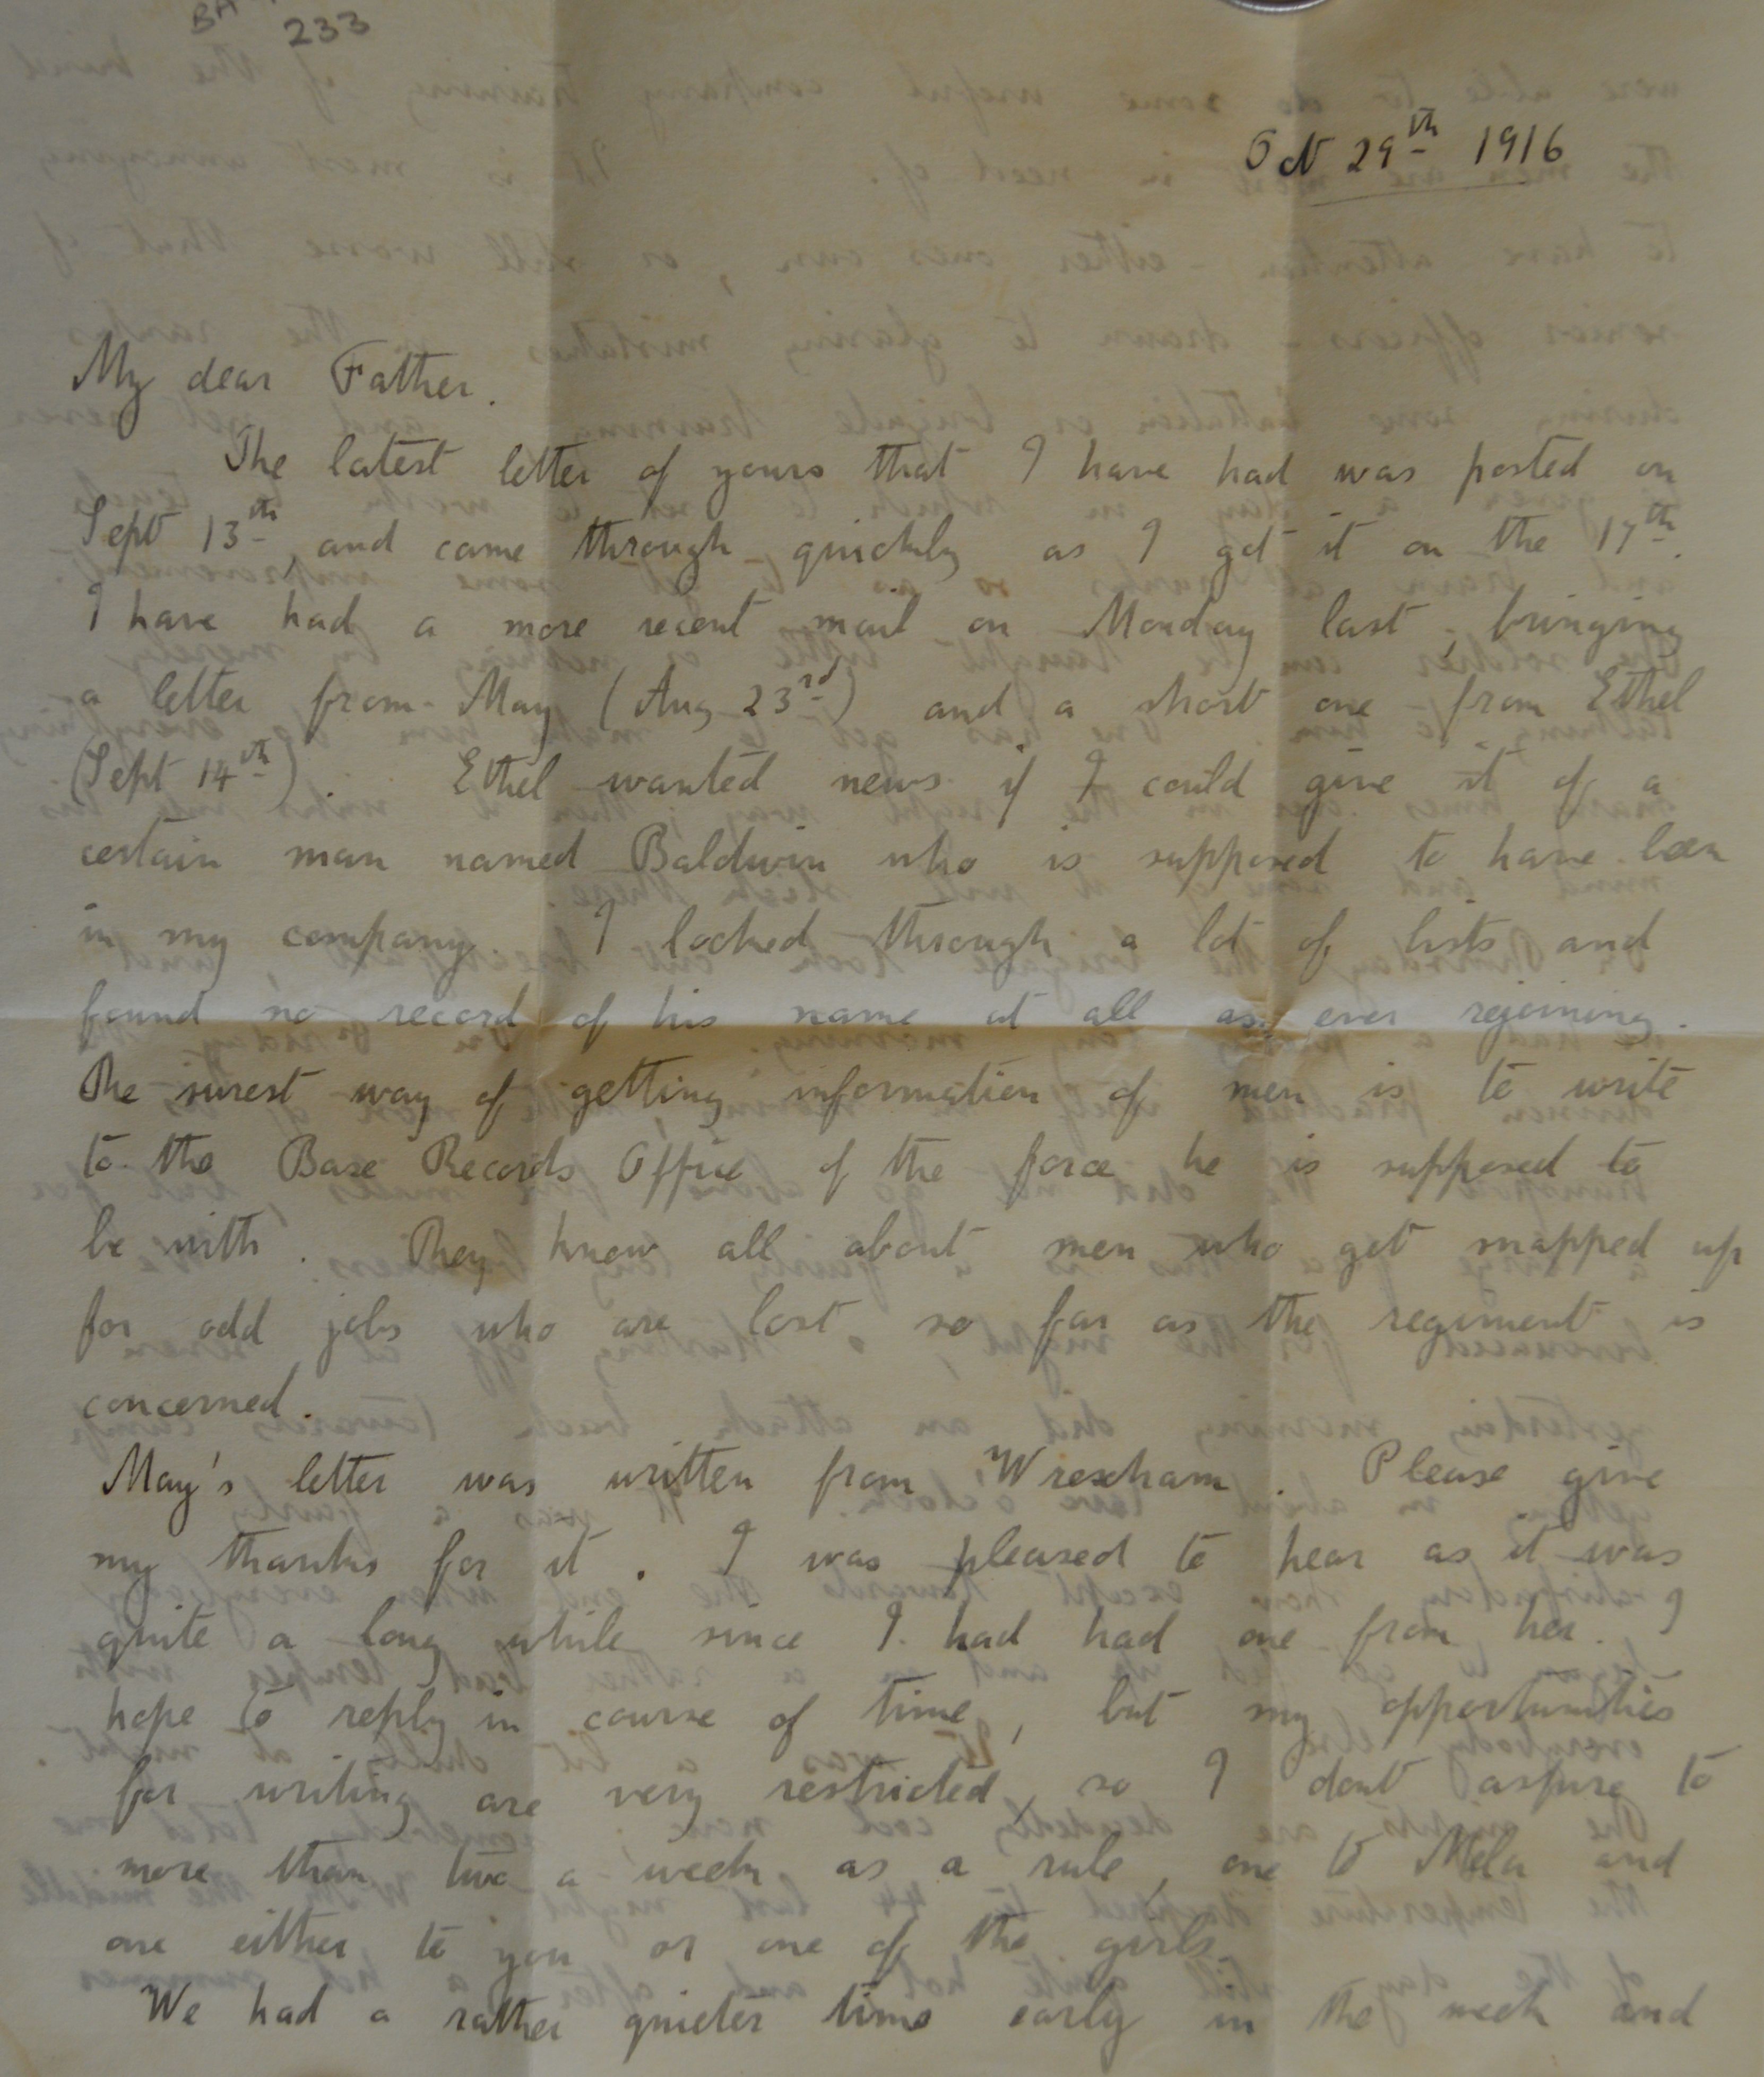 BA
233
Oct 29th 1916
My dear Father.
The latest letter of yours that I have had was posted on
Sept 13th, and came through quickly as I got it on the 17th.
I have had a more recent mail on Monday last, bringing
a letter from May (Aug 23rd) and a short one from Ethel
(Sept 14th). Ethel wanted news if I could give it of a
certain man named Baldwin who is supposed to have been
in my company. I looked through a lot of lists and
found no record of his name at all as ever rejoining.
The surest way of getting information of men is to write
to the Base Records Office of the force he is supposed to
be with. They know all about men who get snapped up
for odd jobs who are lost so far as the regiment is
concerned.
May's letter was written from Wrexham. Please give
my thanks for it. I was pleased to hear as it was
quite a long while since I had had one from her. I
hope to reply in course of time, but my opportunities
for writing are very restricted, so I dont aspire to
more than two a week as a rule, one to Mela and
one either to you or one of the girls.
We had a rather quieter time early in the week and